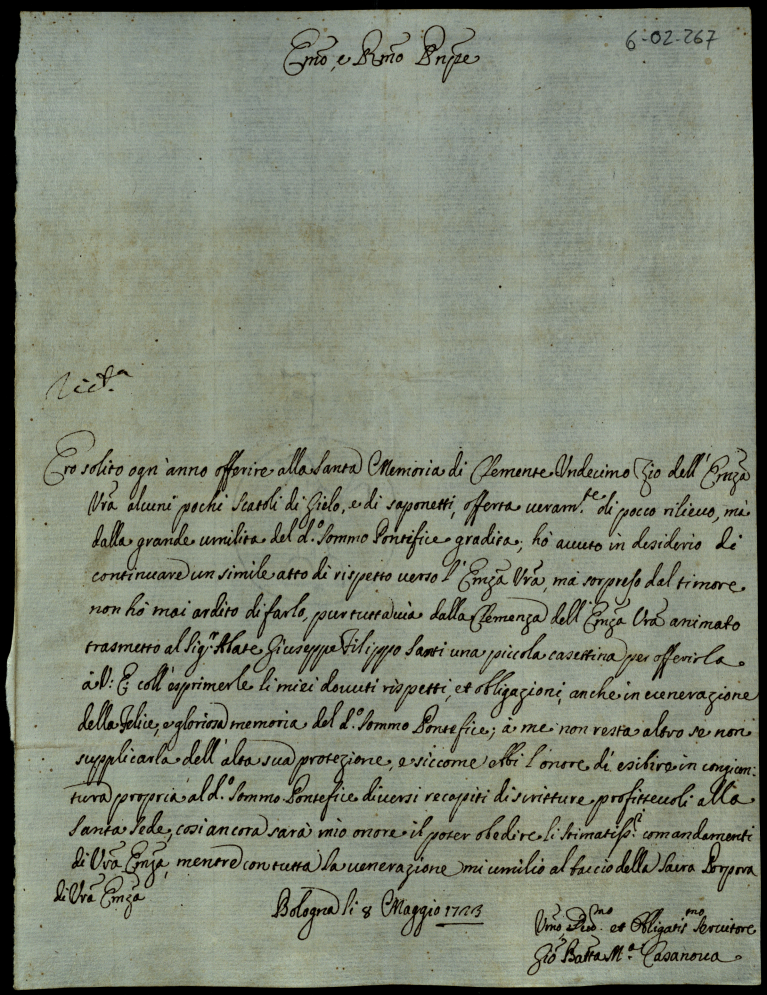 6-02-267
Emo, e Rmo Pnpe
Ero solito ogn'anno offerire alla Santa Memoria di Clemente Undecimo Zio dell'Emza
Vra alcuni pochi scatoli di Zielo, e di saponetti, offerta veram.te di pocco rilieuo, mà
dalla grande umilità del d.o Sommo Pontefice gradita; hò auuto in desiderio di
continuare un simile atto di rispetto verso l'Emza Vra, mà sorpreso dal timore
non hò mai ardito di farlo, pur tuttauia dalla Clemenza dell'Emza Vra animato
trasmetto al Sig.r Abate Giuseppe Filippo Santi una piccola casettina per offerirla
à V: E coll'esprimerle li miei douuti rispetti, et obligazioni, anche in uenerazione
della felice, e gloriosa memoria del d.o Sommo Pontefice; à me non resta altro se non
supplicarla dell'alta sua protezione, e siccome ebbi l'onore di esibire in congion:
tura propria al d.o Sommo Pontefice diuersi recapiti di scritture profitteuoli alla
Santa Sede, così ancora sarà mio onore il poter obedire li stimatiss.i comandamenti
di Vra Emza, mentre con tutta la uenerazione mi umilio al baccio della Sacra Porpora
di Vra Emza
Bologna li 8 Maggio 1723
Vmo, Deo.mo et Obligatis.mo Seruitore
Gio Batta M.a Casanoua